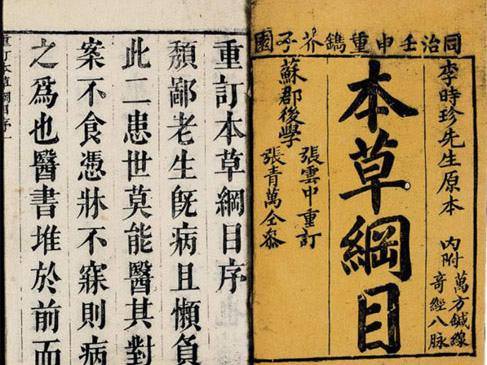 同治壬申重鐫芥子園
李時珍先生原本
內附
萬方鍼線
奇經八脉
本草綱目
蘇郡後學
張雲中重訂
張青萬仝參
重訂本草綱目序
頽鄙老生旣病且懶負
此二患世莫能醫其對
案不食憑牀不寐則病
之爲也醫書堆於前而
重訂本草綱目序